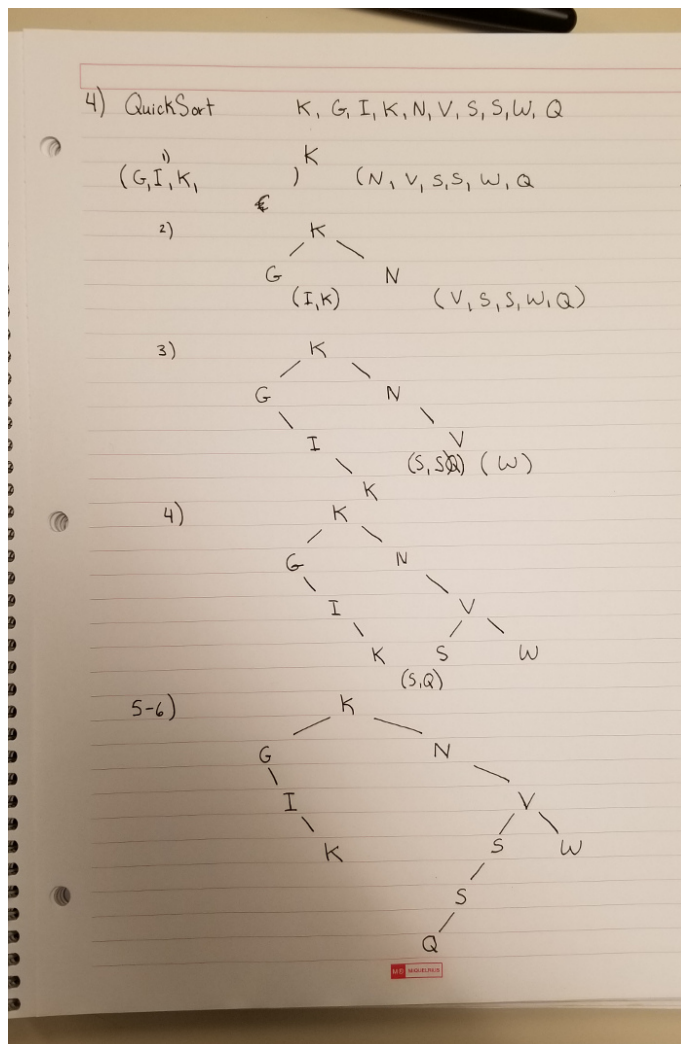 4) QuickSort K, G, I, K, N, V, S, S, W, Q
1) K
(G, I, K, ) (N, V, S, S, W, Q
€
2) K
G N
(I, K) (V, S, S, W, Q)
3) K
G N
I V
(S, S Q) (W)
K
4) K
G N
I V
K S W
(S, Q)
5-6) K
G N
I V
K S W
S
Q
MIQUELRIUS